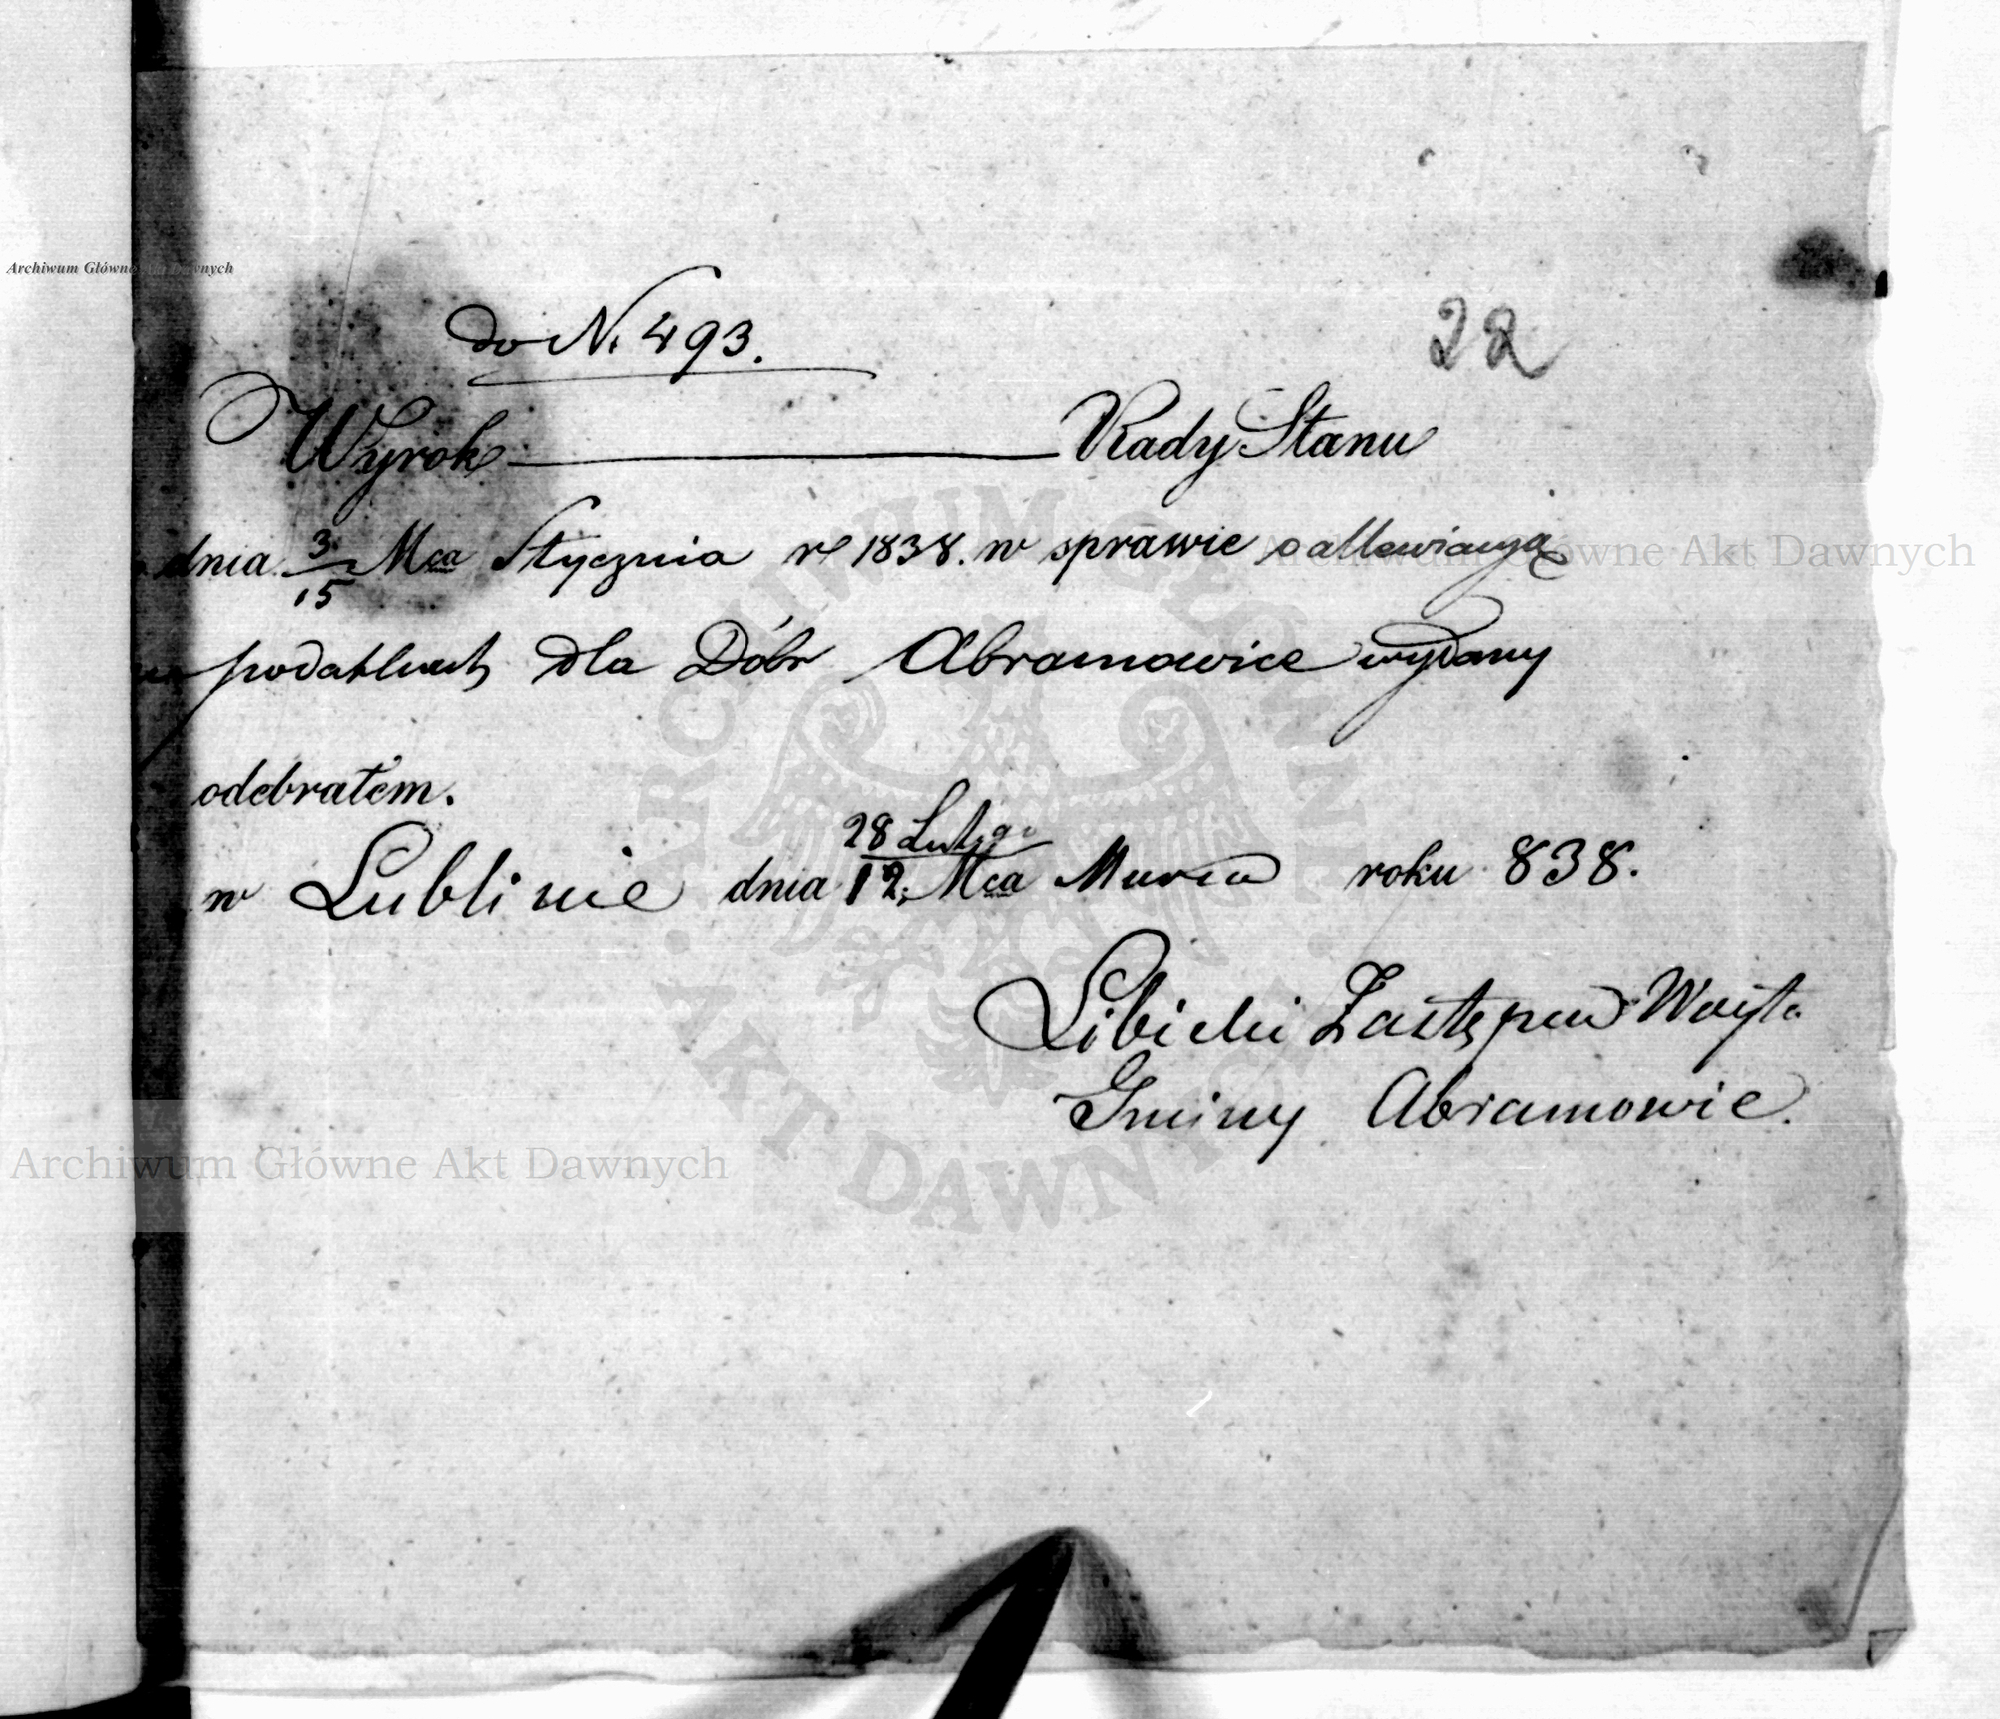 do N. 493.
22
Wyrok Rady Stanu
dnia 3/15 Mca Stycznia r. 1838. w sprawie o allewiacyą
podatkach dla Dóbr Abramowice wydany
odebrałem.
28 Lutego
w Lublinie dnia 12. Mca Marca roku 838.
Libicki Zastępca Woyta
Gminy Abramowic.
Archiwum Główne Akt Dawnych
Archiwum Główne Akt Dawnych
Archiwum Główne Akt Dawnych
ARCHIWUM GŁÓWNE AKT DAWNYCH